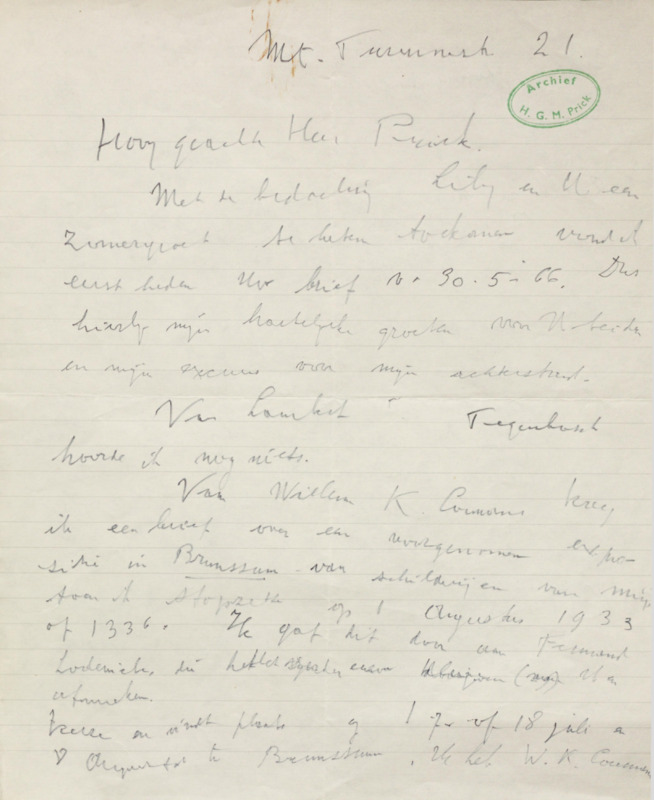 Mt. 21.
Archief
H. G. M. Prick
Hooggeachte Heer Prick.
Met de bedoeling Lily en U een
zomergroet te laten toekomen vond ik
eerst heden Uw brief v. 30-5-66. Dus
hierbij mijn hartelijke groeten voor U beiden
en mijn excuus voor mijn achterstand.
Van Lambert Tegenbosch
hoorde ik nog niets.
Van Willem K. Coumans kreeg
ik een brief over een voorgenomen expo-
sitie in Brunssum van schilderijen van mij
toen ik stopzette op 1 Augustus 1933
of 1336. Ik gaf dit door aan Fernand
Lodewick, die
en vindt plaats op 17 of 18 juli a
te Brunssum. Ik heb W. K. Coumans